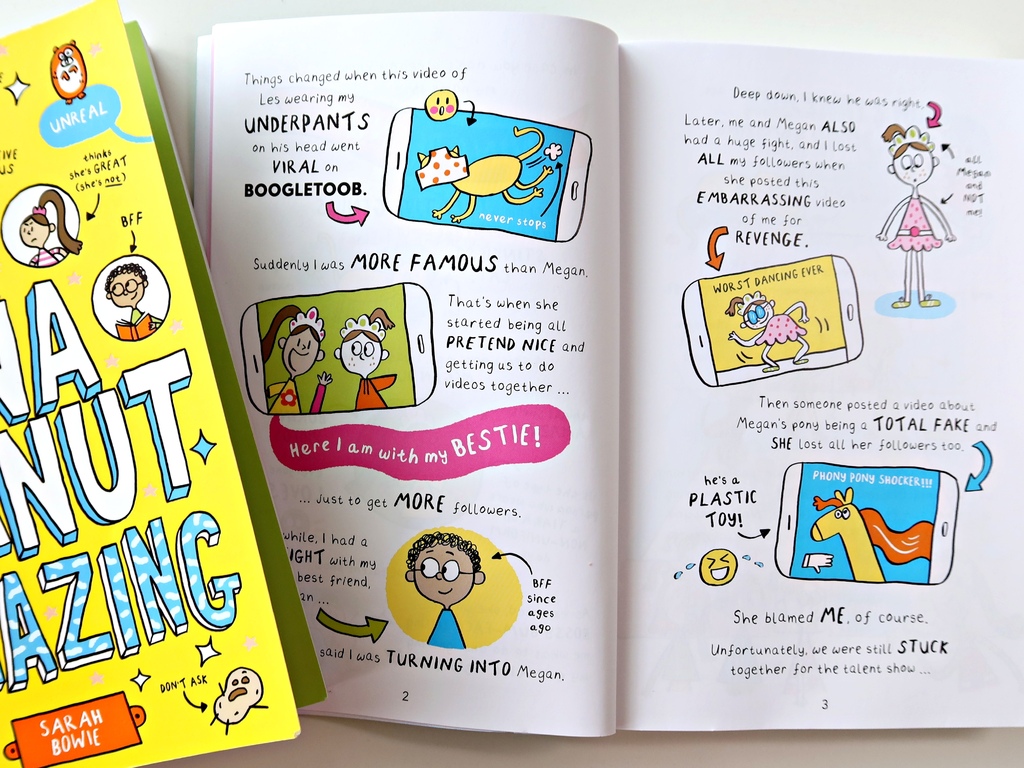 UNREAL
thinks
she's GREAT
(she's not)
BFF
NUT
AZING
DON'T ASK
SARAH
BOWIE
Things changed when this video of
Les wearing my
UNDERPANTS
on his head went
VIRAL on
BOOGLETOOB.
never stops
Suddenly I was MORE FAMOUS than Megan.
That's when she
started being all
PRETEND NICE and
getting us to do
videos together ...
Here I am with my BESTIE!
... Just to get MORE followers.
while, I had a
with my
best friend,
...
BFF
since
ages
ago
said I was TURNING INTO Megan.
2
Deep down, I knew he was right.
Later, me and Megan ALSO
had a huge fight, and I lost
ALL my followers when
she posted this
EMBARRASSING video
of me for
REVENGE.
all
Megan
and
NOT
me!
WORST DANCING EVER
Then someone posted a video about
Megan's pony being a TOTAL FAKE and
SHE lost all her followers too.
he's a
PLASTIC
TOY!
PHONY PONY SHOCKER!!!
She blamed ME, of course.
Unfortunately, we were still STUCK
together for the talent show ...
3